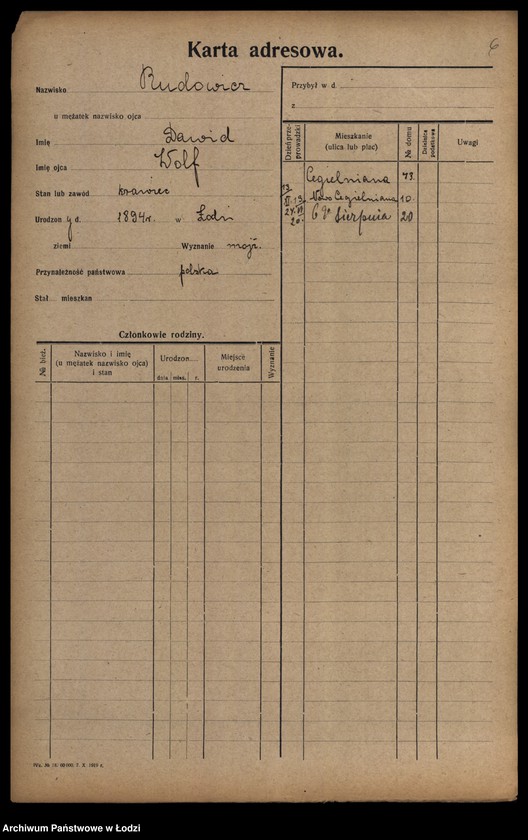 6
Karta adresowa.
Nazwisko Rudowicz
u mężatek nazwisko ojca
Imię Dawid
Imię ojca Wolf
Stan lub zawód krawiec
Urodzon y d. 1894 r. w Łodzi
ziemi Wyznanie mojż.
Przynależność państwowa polska
Stał. mieszkan
Członkowie rodziny.
№ bież. Nazwisko i imię (u mężatek nazwisko ojca) i stan Urodzon... dnia mies. r. Miejsce urodzenia Wyznanie
Przybył w d.
z
Dzień przeprowadzki Mieszkanie (ulica lub plac) № domu Dzielnica podatkowa Uwagi
Cegielniana 73.
Nowo Cegielniana 10.
6go Sierpnia 20
Archiwum Państwowe w Łodzi